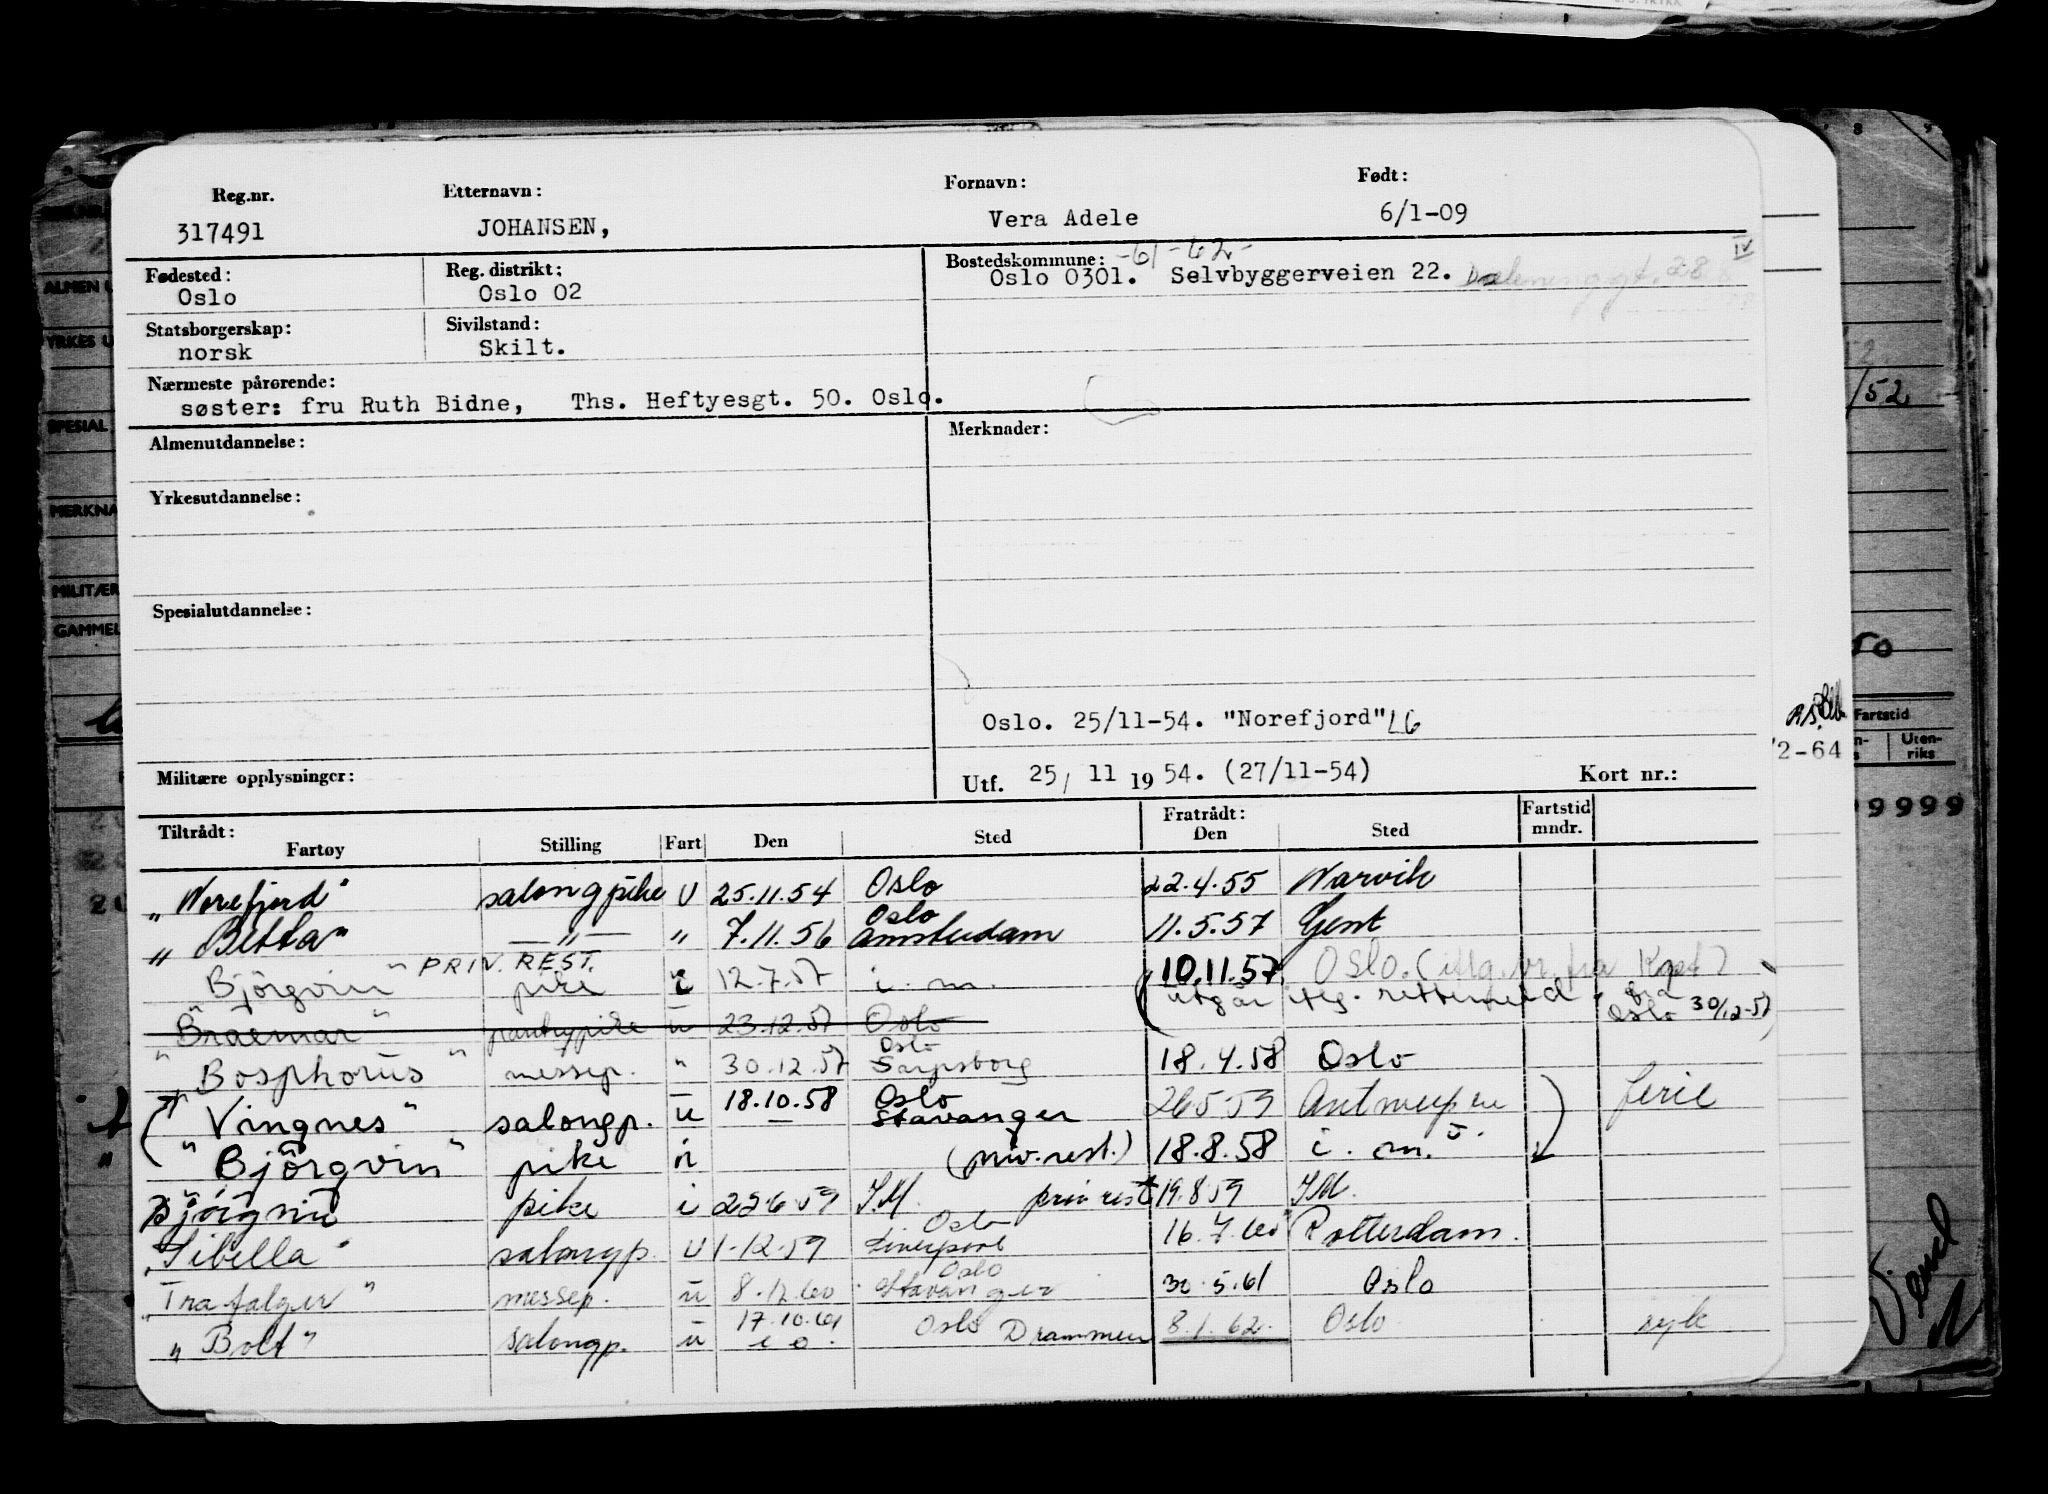 Reg.nr. Etternavn: Fornavn: Født:
317491 JOHANSEN, Vera Adele 6/1-09
Fødested: Reg. distrikt: Bostedskommune: -61-62-
Oslo Oslo 02 Oslo 0301. Selvbyggerveien 22. 28
IV
Statsborgerskap: Sivilstand:
norsk Skilt.
Nærmeste pårørende:
søster: fru Ruth Bidne, Ths. Heftyesgt. 50. Oslo.
Almenutdannelse: Merknader:
Yrkesutdannelse:
Spesialutdannelse:
Oslo. 25/11-54. "Norefjord" LG
Militære opplysninger: Utf. 25/ 11 19 54. (27/11-54) Kort nr.:
Tiltrådt: Fratrådt: Fartstid
Fartøy Stilling Fart Den Sted Den Sted mndr.
"Norefjord" salongpike U 25.11.54 Oslo 22.4.55 Narvik
"Betta" —"— " 7.11.56 Oslo Amsterdam 11.5.57 Gent
"Bjørgvin" PRIV. REST. pike i 12.7.57 i. m. 10.11.57. Oslo. fra Kapt
"Braemar" pantrypike u 23.12.57 Oslo utgår itflg. rettemeld. fra Oslo 30/12-57
"Bosphorus" messep. " 30.12.57 Oslo Sarpsborg 18.4.58 Oslo
"Vingnes" salongp. u 18.10.58 Oslo Stavanger 26 5 59 Antwerpen ferie
"Björgvin" pike i (priv.rest.) 18.8.58 i. m.
Björgvin pike i 22 6 59 I.M. priv rest 19.8 59 IM.
"Sibella" salongp. U 1-12-59 Oslo Liverpool 16.7.60 Rotterdam.
"Trafalger" messep. u 8.12.60 Oslo Stavanger 30.5.61 Oslo
"Bolt" salongp. u 17.10.61 Oslo Drammen 8.1.62. Oslo syk
ALMEN U
YRKES U
SPESIAL
MERKNA
MILITÆR
GAMMEL
/52
50
Fartstid
Uten-
riks
2-64
9999